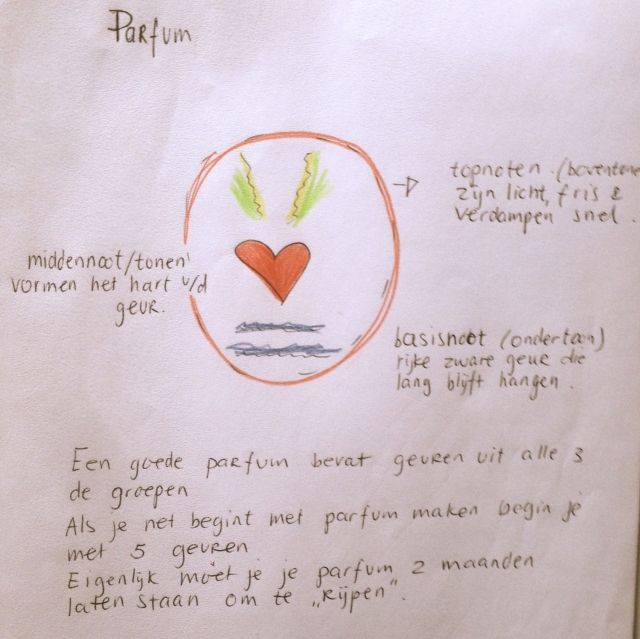 Parfum
topnoten (boventone
zijn licht, fris &
verdampen snel.
middennoot/tonen
vormen het hart v/d
geur.
basisnoot (ondertoon)
rijke zware geur die
lang blijft hangen.
Een goede parfum bevat geuren uit alle 3
de groepen
Als je net begint met parfum maken begin je
met 5 geuren
Eigenlijk moet je je parfum 2 maanden
laten staan om te „Rijpen”.